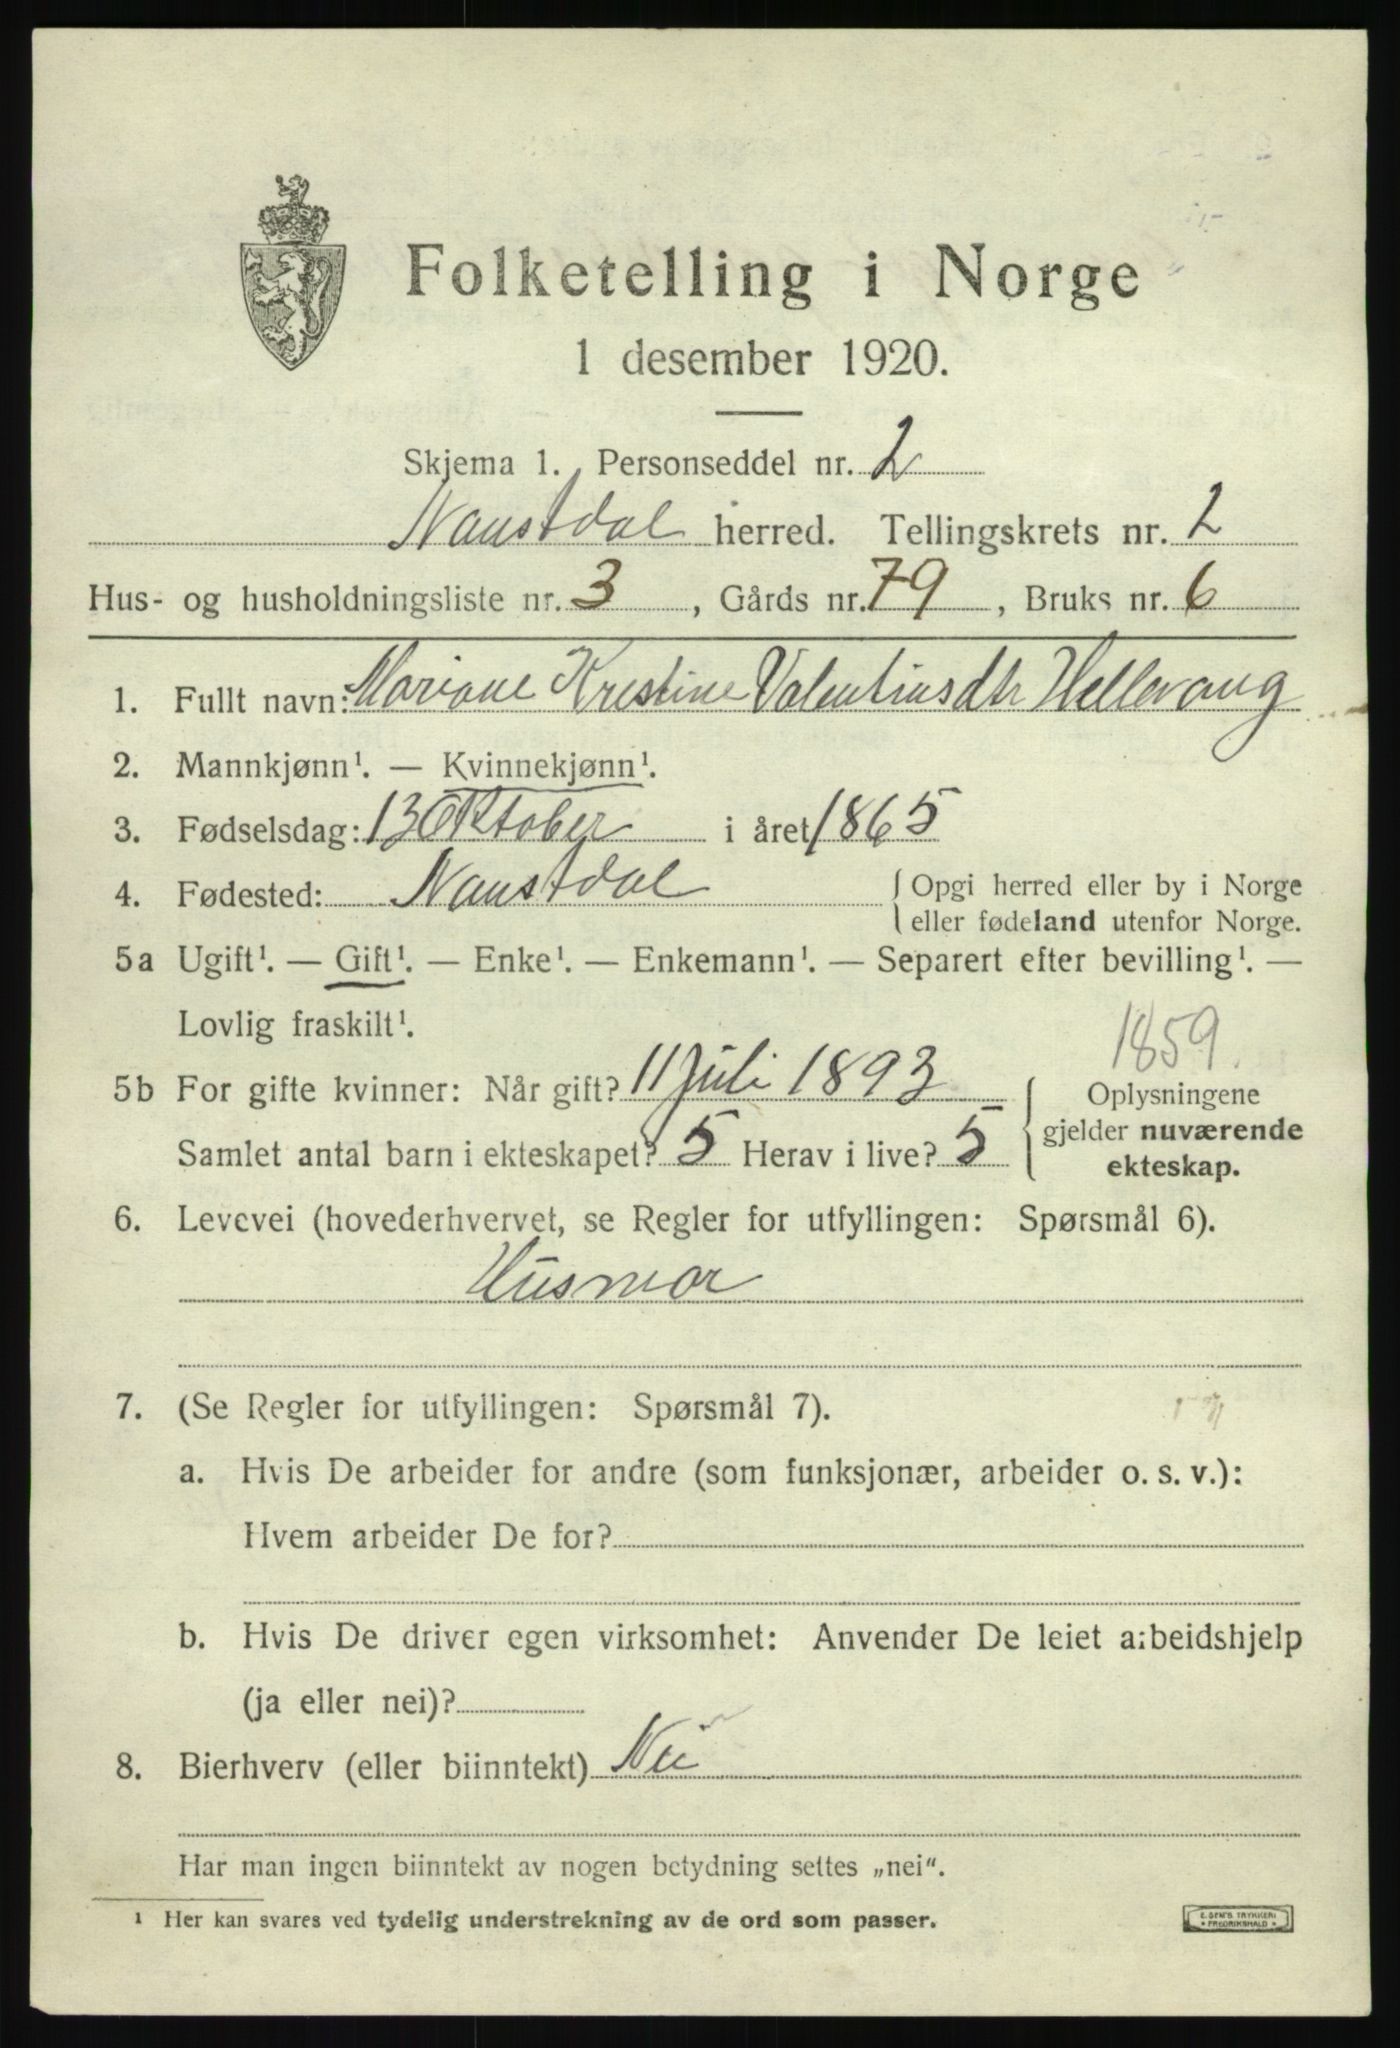 Folketelling i Norge
1 desember 1920.
Skjema 1. Personseddel nr. 2
Naustdal herred. Tellingskrets nr. 2
Hus- og husholdningsliste nr. 3, Gårds nr. 79, Bruks nr. 6
1. Fullt navn: Mariane Kristine Valentinsdtr Hellevang
2. Mannkjønn¹. — Kvinnekjønn¹.
3. Fødselsdag: 13 Oktober i året 1865
4. Fødested: Naustdal { Opgi herred eller by i Norge
eller fødeland utenfor Norge.
5a Ugift¹. — Gift¹. — Enke¹. — Enkemann¹. — Separert efter bevilling¹. —
Lovlig fraskilt¹.
1859.
5b For gifte kvinner: Når gift? 11 Juli 1893 { Oplysningene
gjelder nuværende
Samlet antal barn i ekteskapet? 5 Herav i live? 5
ekteskap.
6. Levevei (hovederhvervet, se Regler for utfyllingen: Spørsmål 6).
Husmor
7. (Se Regler for utfyllingen: Spørsmål 7).
a. Hvis De arbeider for andre (som funksjonær, arbeider o. s. v.):
Hvem arbeider De for?
b. Hvis De driver egen virksomhet: Anvender De leiet arbeidshjelp
(ja eller nei)?
8. Bierhverv (eller biinntekt) Nei
Har man ingen biinntekt av nogen betydning settes „nei“.
¹ Her kan svares ved tydelig understrekning av de ord som passer.
E. SEM'S TRYKKERI
FREDRIKSHALD